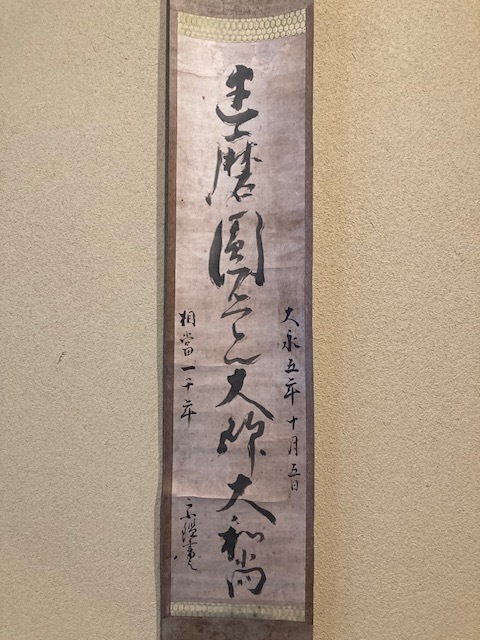 大永五年十月五日
達磨圓覺大師大和尚
相當一千年
宗鑑書之